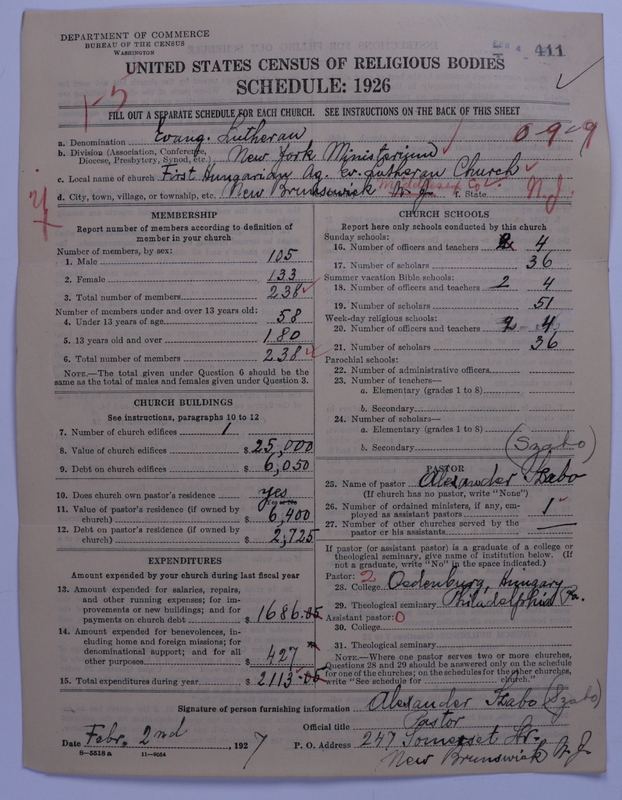 DEPARTMENT OF COMMERCE
BUREAU OF THE CENSUS
WASHINGTON
411
UNITED STATES CENSUS OF RELIGIOUS BODIES
SCHEDULE: 1926
1-5
FILL OUT A SEPARATE SCHEDULE FOR EACH CHURCH. SEE INSTRUCTIONS ON THE BACK OF THIS SHEET
a. Denomination Evang. Lutheran
0-9-9
b. Division (Association, Conference, Diocese, Presbytery, Synod, etc.) New York Ministerium
c. Local name of church First Hungarian Ag. Ev. Lutheran Church
d. City, town, village, or township, etc. New Brunswick N. J. Middlesex Co. f. State N.J.
MEMBERSHIP
Report number of members according to definition of
member in your church
Number of members, by sex:
1. Male 105
2. Female 133
3. Total number of members 238
Number of members under and over 13 years old:
4. Under 13 years of age 58
5. 13 years old and over 180
6. Total number of members 238
NOTE.—The total given under Question 6 should be the
same as the total of males and females given under Question 3.
CHURCH BUILDINGS
See instructions, paragraphs 10 to 12
7. Number of church edifices 1
8. Value of church edifices $ 25,000
9. Debt on church edifices $ 6,050
10. Does church own pastor's residence yes
11. Value of pastor's residence (if owned by
church) $ 6,400
12. Debt on pastor's residence (if owned by
church) $ 2,725
EXPENDITURES
Amount expended by your church during last fiscal year
13. Amount expended for salaries, repairs,
and other running expenses; for im-
provements or new buildings; and for
payments on church debt $ 1686.05
14. Amount expended for benevolences, in-
cluding home and foreign missions; for
denominational support; and for all
other purposes $ 427
15. Total expenditures during year $ 2113.05
CHURCH SCHOOLS
Report here only schools conducted by this church
Sunday schools:
16. Number of officers and teachers 4
17. Number of scholars 36
Summer vacation Bible schools:
18. Number of officers and teachers 2 4
19. Number of scholars 51
Week-day religious schools:
20. Number of officers and teachers 4
21. Number of scholars 36
Parochial schools:
22. Number of administrative officers
23. Number of teachers—
a. Elementary (grades 1 to 8)
b. Secondary
24. Number of scholars—
a. Elementary (grades 1 to 8)
b. Secondary
(Szabo)
PASTOR
25. Name of pastor Alexander Szabo
(If church has no pastor, write "None")
26. Number of ordained ministers, if any, em-
ployed as assistant pastors 1
27. Number of other churches served by the
pastor or his assistants —
If pastor (or assistant pastor) is a graduate of a college or
theological seminary, give name of institution below. (If
not a graduate, write "No" in the space indicated.)
Pastor: 2
28. College Oedenburg, Hungary
29. Theological seminary Philadelphia Pa.
Assistant pastor: 0
30. College
31. Theological seminary
NOTE.—Where one pastor serves two or more churches,
Questions 28 and 29 should be answered only on the schedule
for one of the churches; on the schedules for the other churches,
write "See schedule for church."
Signature of person furnishing information Alexander Szabo (Szabo)
Official title Pastor
Date Febr. 2nd, 1927 P. O. Address 247 Somerset Str.
S—5518a 11—9054 New Brunswick N. J.